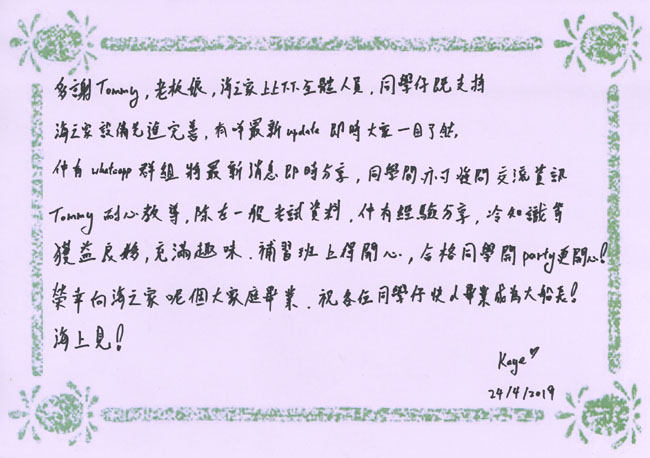 多謝Tommy,老板娘,海之家上上下下全體人員,同學仔既支持
海之家設備先進完善,有咩最新update即時大家一目了然,
仲有whatsapp群組將最新消息即時分享,同學間亦可發問交流資訊
Tommy耐心教導,除左一般考試資料,仲有經驗分享,冷知識等
獲益良多,充滿趣味.補習班上得開心,合格同學開party更開心!
榮幸向海之家呢個大家庭畢業.祝各位同學仔快d畢業成為大船長!
海上見!
Kaye♡
24/4/2019